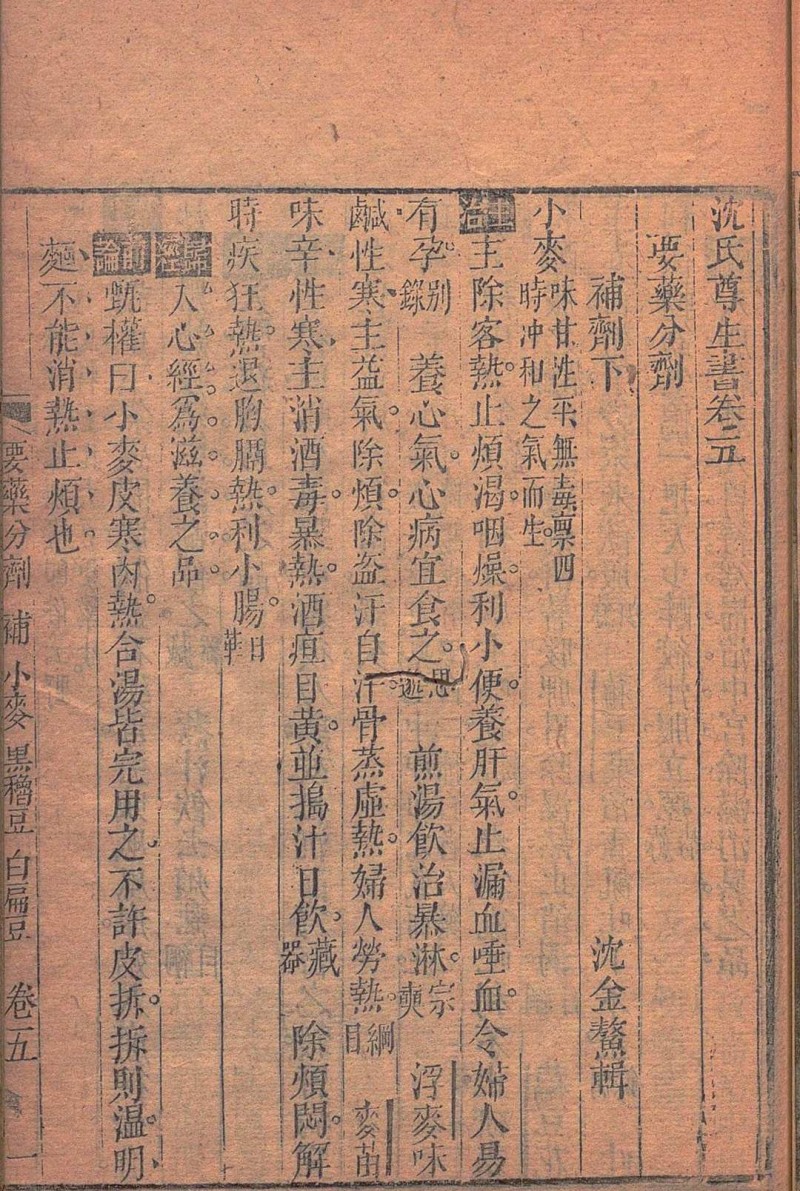 沈氏尊生書卷二五
要藥分劑
補劑下 沈金鰲輯
小麥 味甘性平無毒稟四時冲和之氣而生
主治 主除客熱止煩渴咽燥利小便養肝氣止漏血唾血令婦人易
有孕 別錄 養心氣心病宜食之 思邈 煎湯飲治暴淋 宗奭 浮麥味
鹹性寒主益氣除煩除盜汗自汗骨蒸虛熱婦人勞熱 綱目 麥苗
味辛性寒主消酒毒暴熱酒疸目黃並搗汁日飲 藏器 除煩悶解
時疾狂熱退胸膈熱利小腸 日華
歸經 入心經爲滋養之品
前論 甄權曰小麥皮寒肉熱合湯皆完用之不許皮拆拆則温明
麵不能消熱止煩也
要藥分劑 補 小麥 黑穭豆 白扁豆 卷五 一